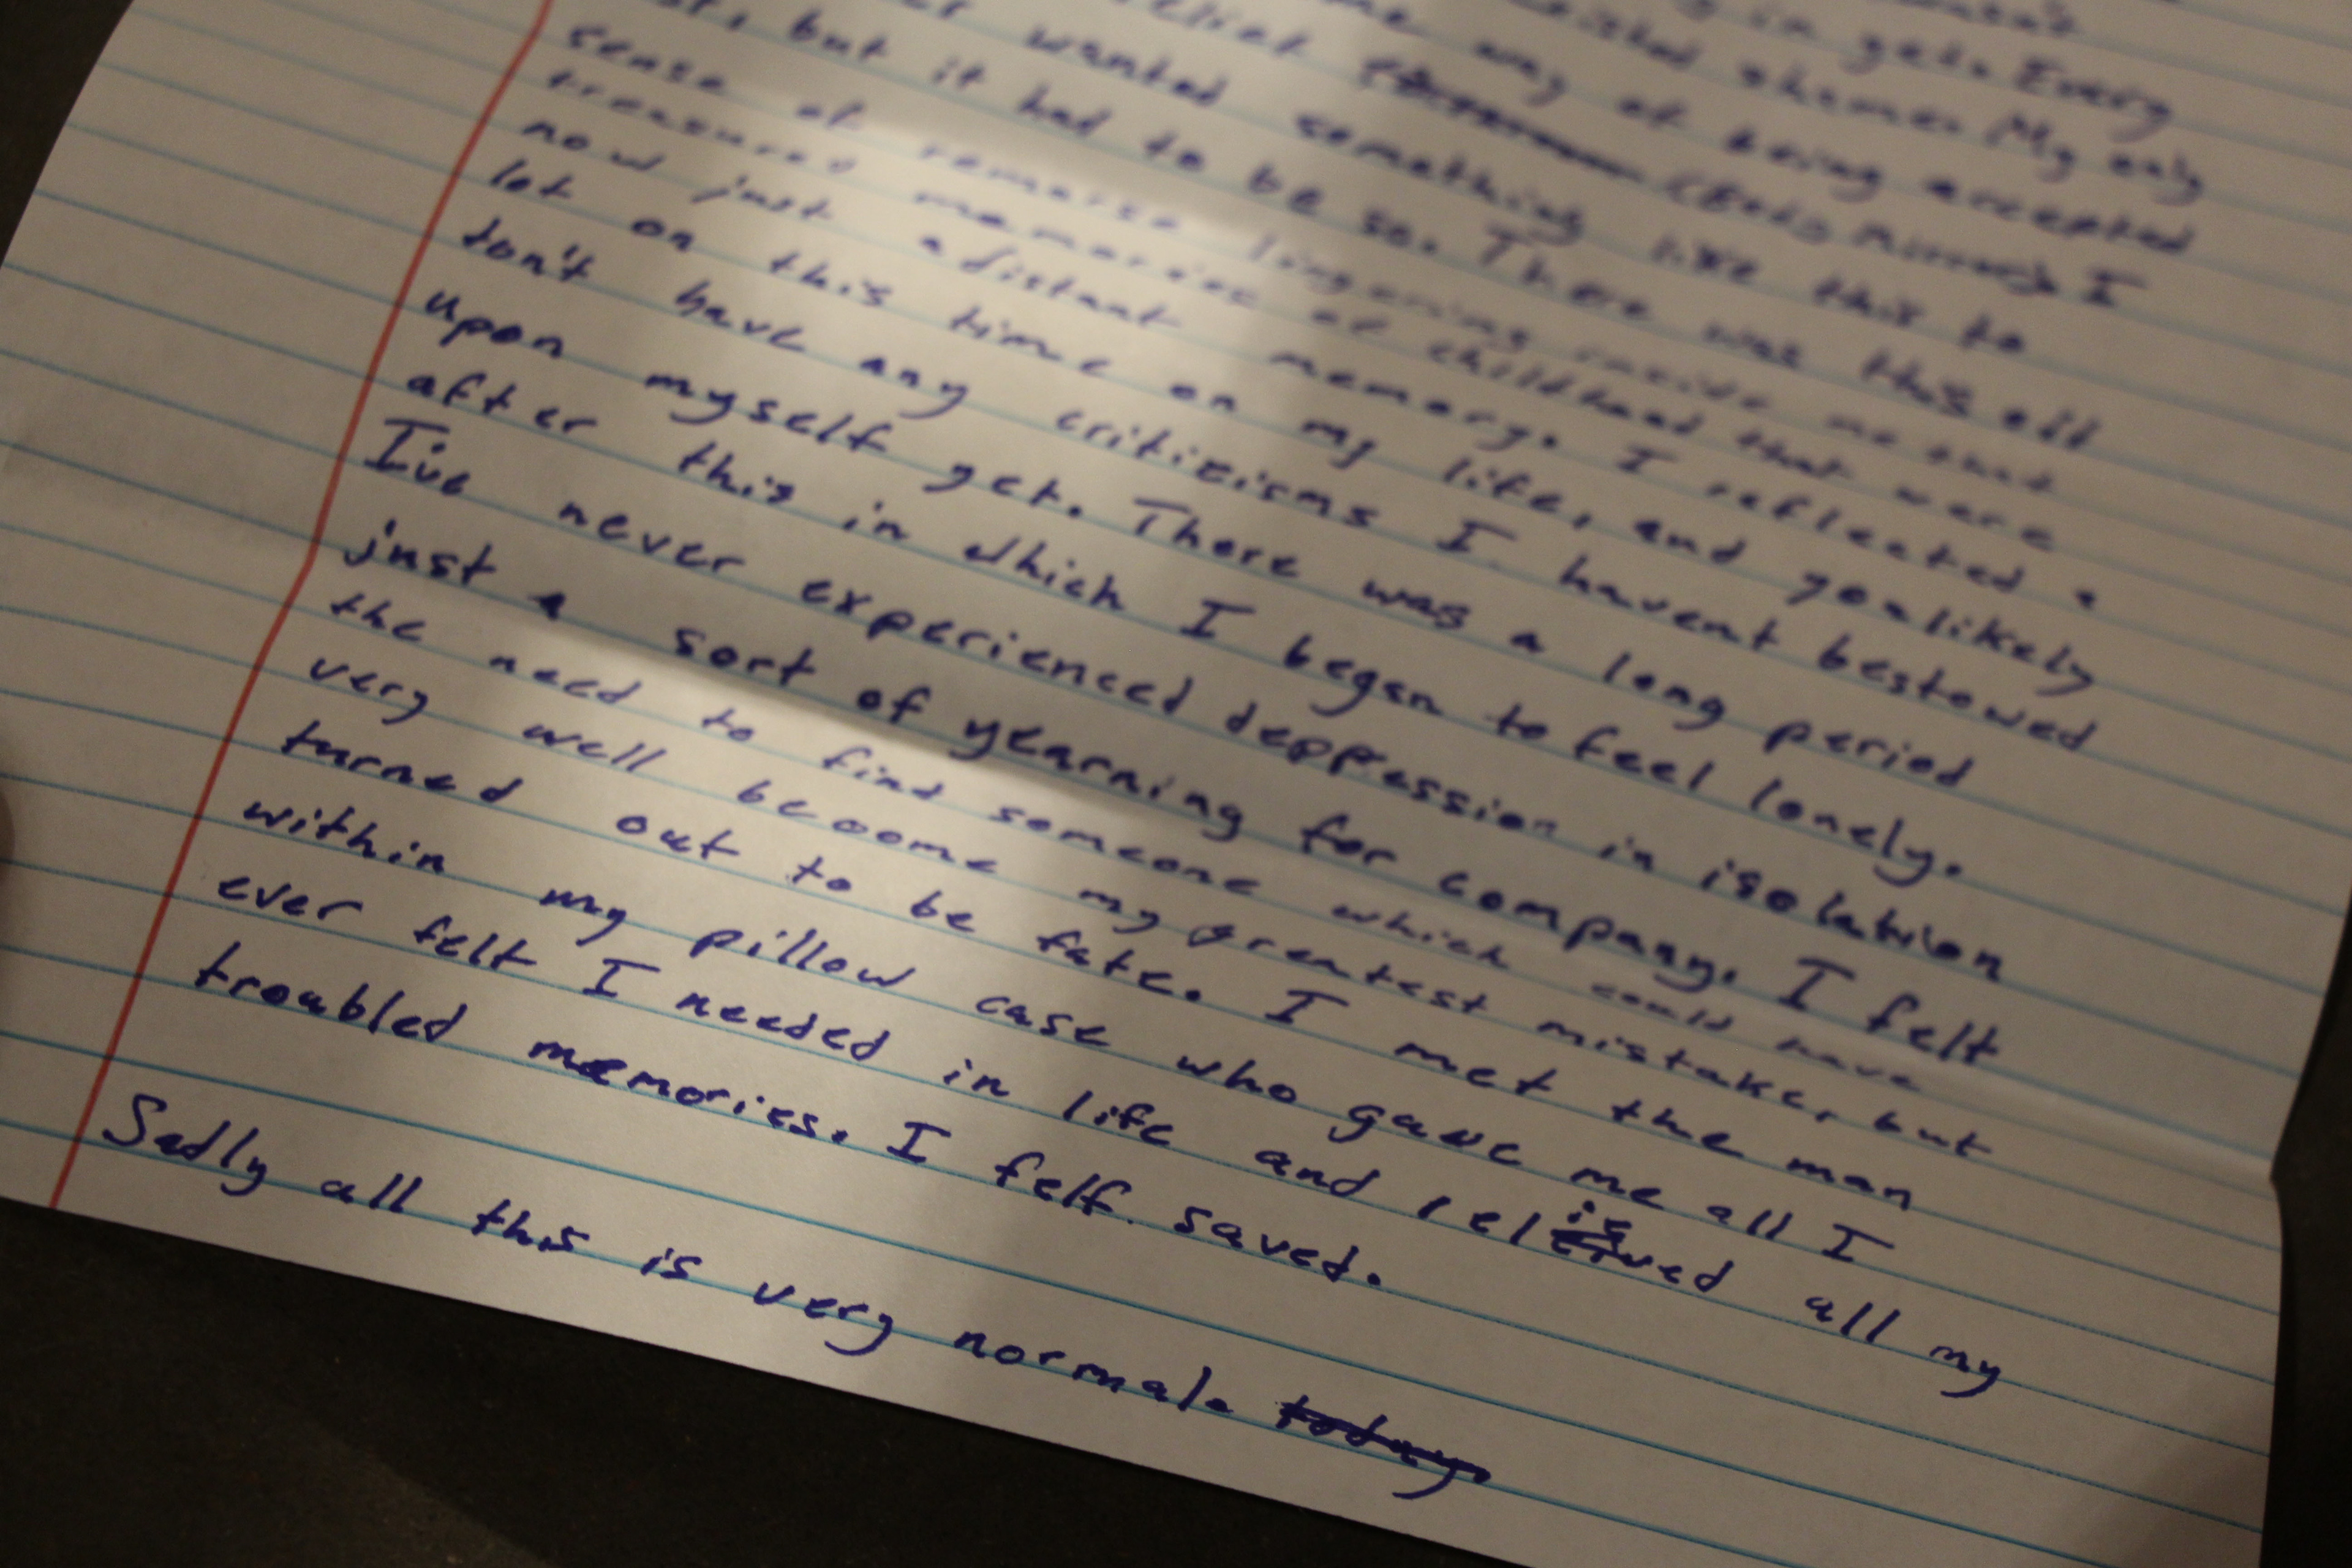 in yet. Every
shame. My only
me way of being accepted
relief (Body Mirror) I
wanted something like this to
but it had to be so. There was this old
sense of remorse lingering inside me that
treasured memories of childhood that were
now just a distant memory. I reflected a
lot on this time on my life, and you likely
don't have any critizisms I havent bestowed
upon myself yet. There was a long period
after this in which I began to feel lonely.
I've never experienced deppession in isolation
just a sort of yearning for company. I felt
the need to find someone which could have
very well become my greatest mistake, but
turned out to be fate. I met the man
within my pillow case who gave me all I
ever felt I needed in life and relieved all my
troubled memories. I felt saved.
Sadly all this is very normal. today.